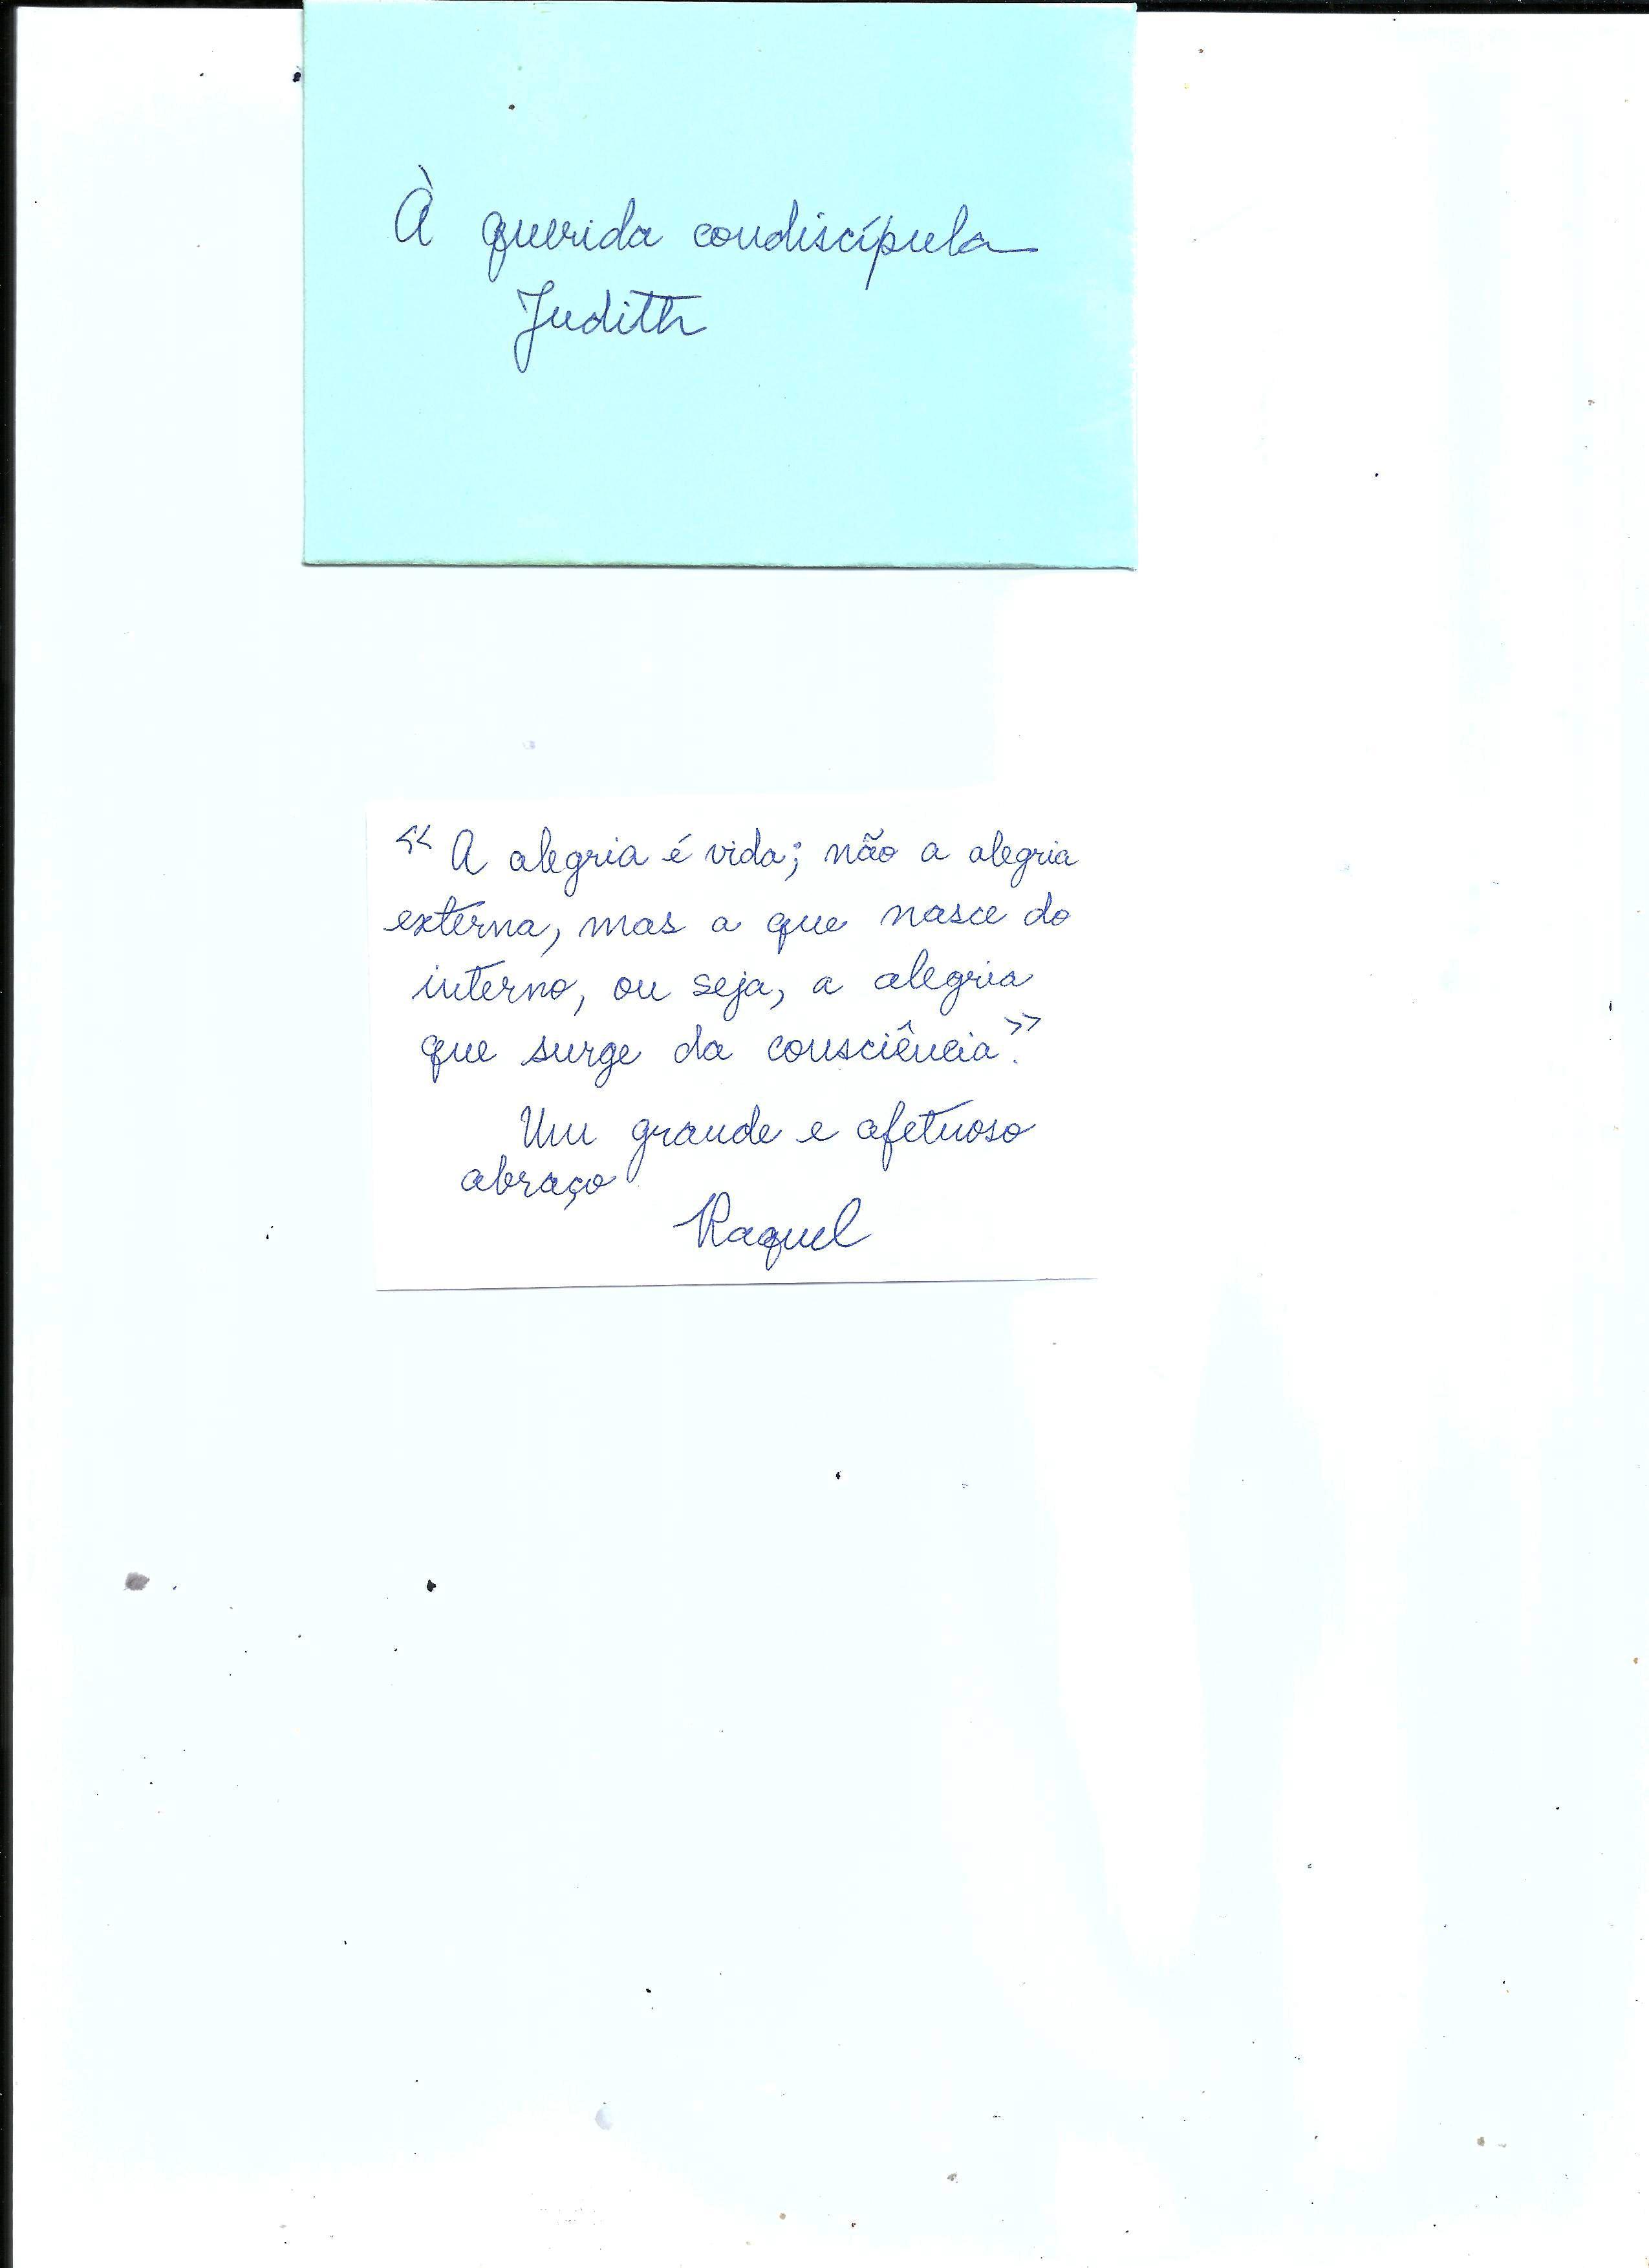 À querida condiscípula
Judith
« A alegria é vida; não a alegria
externa, mas a que nasce do
interno, ou seja, a alegria
que surge da consciência».
Um grande e afetuoso
abraço
Raquel